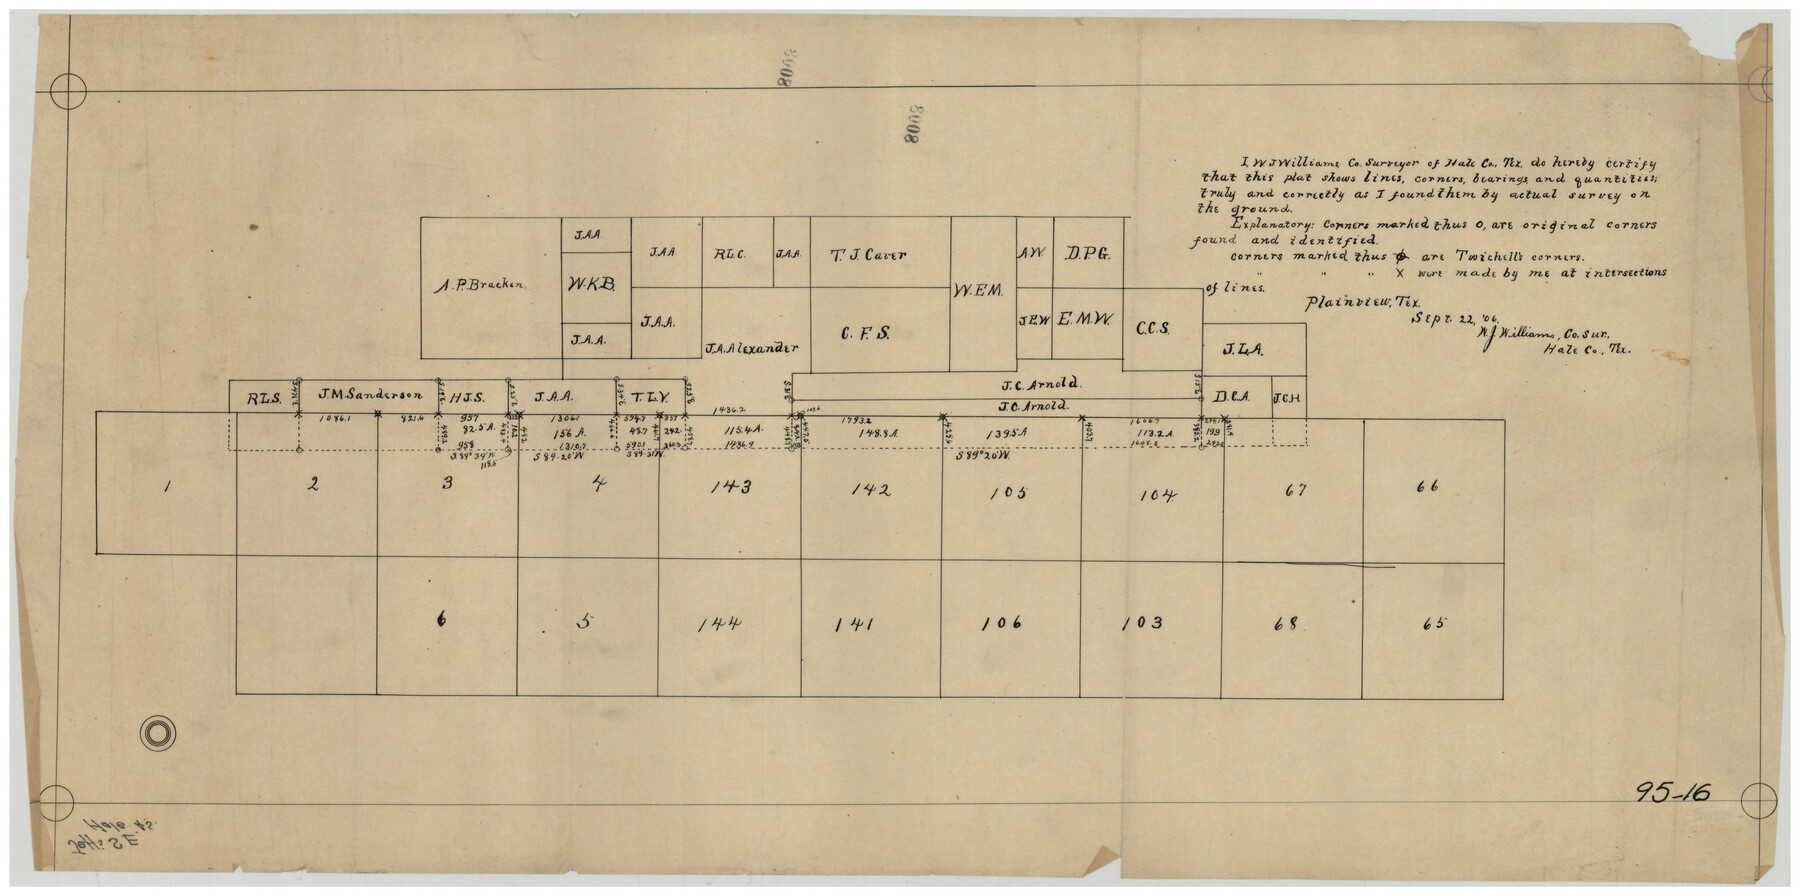 8008
8008
I, W.J. Williams Co. Surveyor of Hale Co., Tex. do hereby certify
that this plat shows lines, corners, bearings and quantities
truly and correctly as I found them by actual survey on
the ground.
Explanatory: Corners marked thus O, are original corners
found and identified.
Corners marked thus ϕ are Twichell's corners.
" " " X were made by me at intersections
of lines.
Plainview, Tex.
Sept. 22, '06.
W.J. Williams, Co. Sur.,
Hale Co., Tex.
A.P. Bracken.
J.A.A.
W.K.B.
J.A.A.
J.A.A.
J.A.A.
R.L.C.
J.A.A.
J.A. Alexander
T.J. Caver
C.F.S.
W.E.M.
A.W.
D.P.G.
J.E.W
E.M.W.
C.C.S.
J.L.A.
R.L.S.
J.M. Sanderson
H.J.S.
J.A.A.
T.L.Y.
J.C. Arnold.
J.C. Arnold.
D.C.A.
J.C.H.
1086.1
821.6
957
1306.1
594.7
1436.2
1793.2
1606.7
82.5 A.
156 A.
48.7
242
115.4 A.
148.8 A.
139.5 A
113.2 A.
199
958
1310.7
590.1
1436.9
1608.2
S 89° 34' W
118.5
S 89-20 W
S 89-31 W.
S 89° 20' W.
1
2
3
4
143
142
105
104
67
66
6
5
144
141
106
103
68
65
95-16